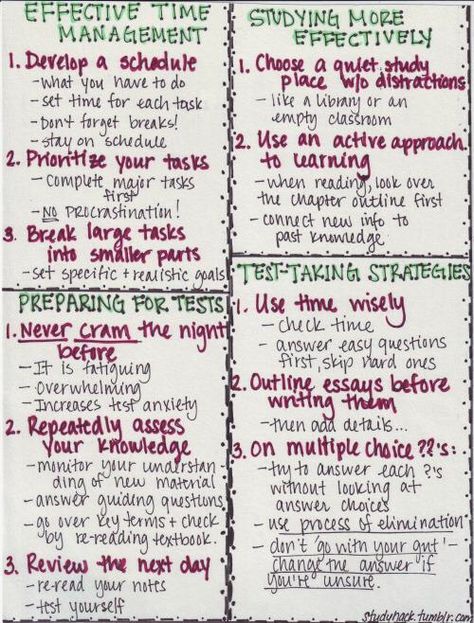 EFFECTIVE TIME
MANAGEMENT
1. Develop a schedule
- what you have to do
- set time for each task
- Don't forget breaks!
- stay on schedule
2. Prioritize your tasks
- Complete major tasks
first
- NO PROCRASTINATION!
3. Break large tasks
into smaller parts
- set specific + realistic goals
STUDYING MORE
EFFECTIVELY
1. Choose a quiet study
place w/o distractions
- like a library or an
empty classroom
2. Use an active approach
to learning
- when reading, look over
the chapter outline first
- connect new info to
past knowledge
PREPARING FOR TESTS
1. Never cram the night
before
- It is fatiguing
- Overwhelming
- Increases test anxiety
2. Repeatedly assess
your knowledge
- monitor your understan-
ding of new material
- answer guiding questions
- go over key terms + check
by re-reading textbook.
3. Review the next day
- re-read your notes
- test yourself
TEST-TAKING STRATEGIES
1. Use time wisely
- check time
- answer easy questions
first, skip hard ones
2. Outline essays before
writing them
- then add details...
3. On multiple choice ??'s:
- try to answer each ?'s
without looking at
answer choices
- use process of elimination
- don't 'go with your gut' -
change the answer if
you're unsure.
studyhack.tumblr.com